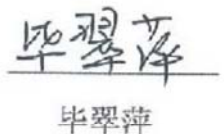 毕翠萍
毕翠萍